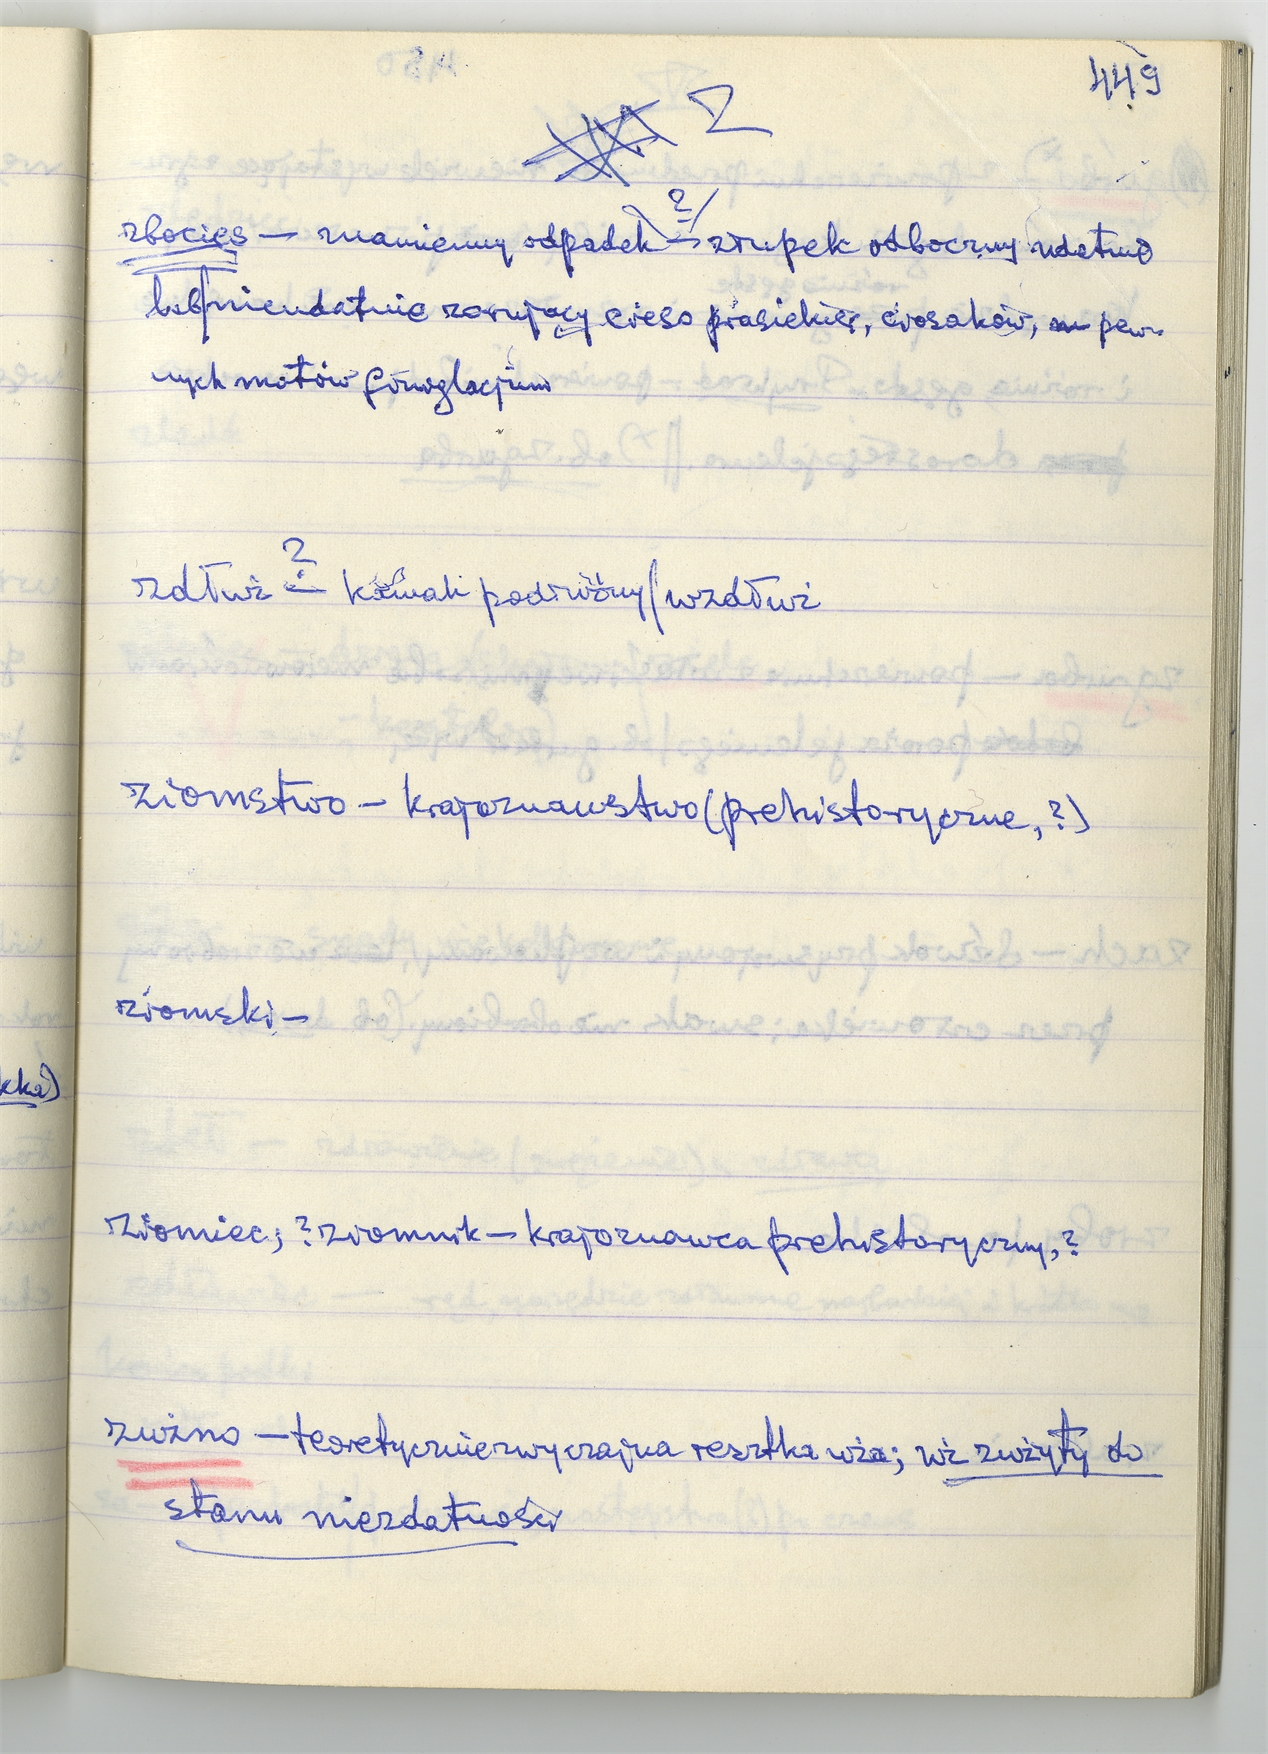 449
Z
zbocies — znamienny odpadek ?/ — złupek odboczny udatnie
lub/nieudatnie zorujący cieso prasiekier, ciosaków, pew-
nych motów finiglacjum
zdłuż ? — podróżny/wzdłuż
ziomstwo — krajoznawstwo (prehistoryczne, ?)
ziomski —
ziomiec; ? ziomnik — krajoznawca prehistoryczny, ?
zużno — teoretycznie zwyczajna resztka uża; uż zużyty do
stanu niezdatności